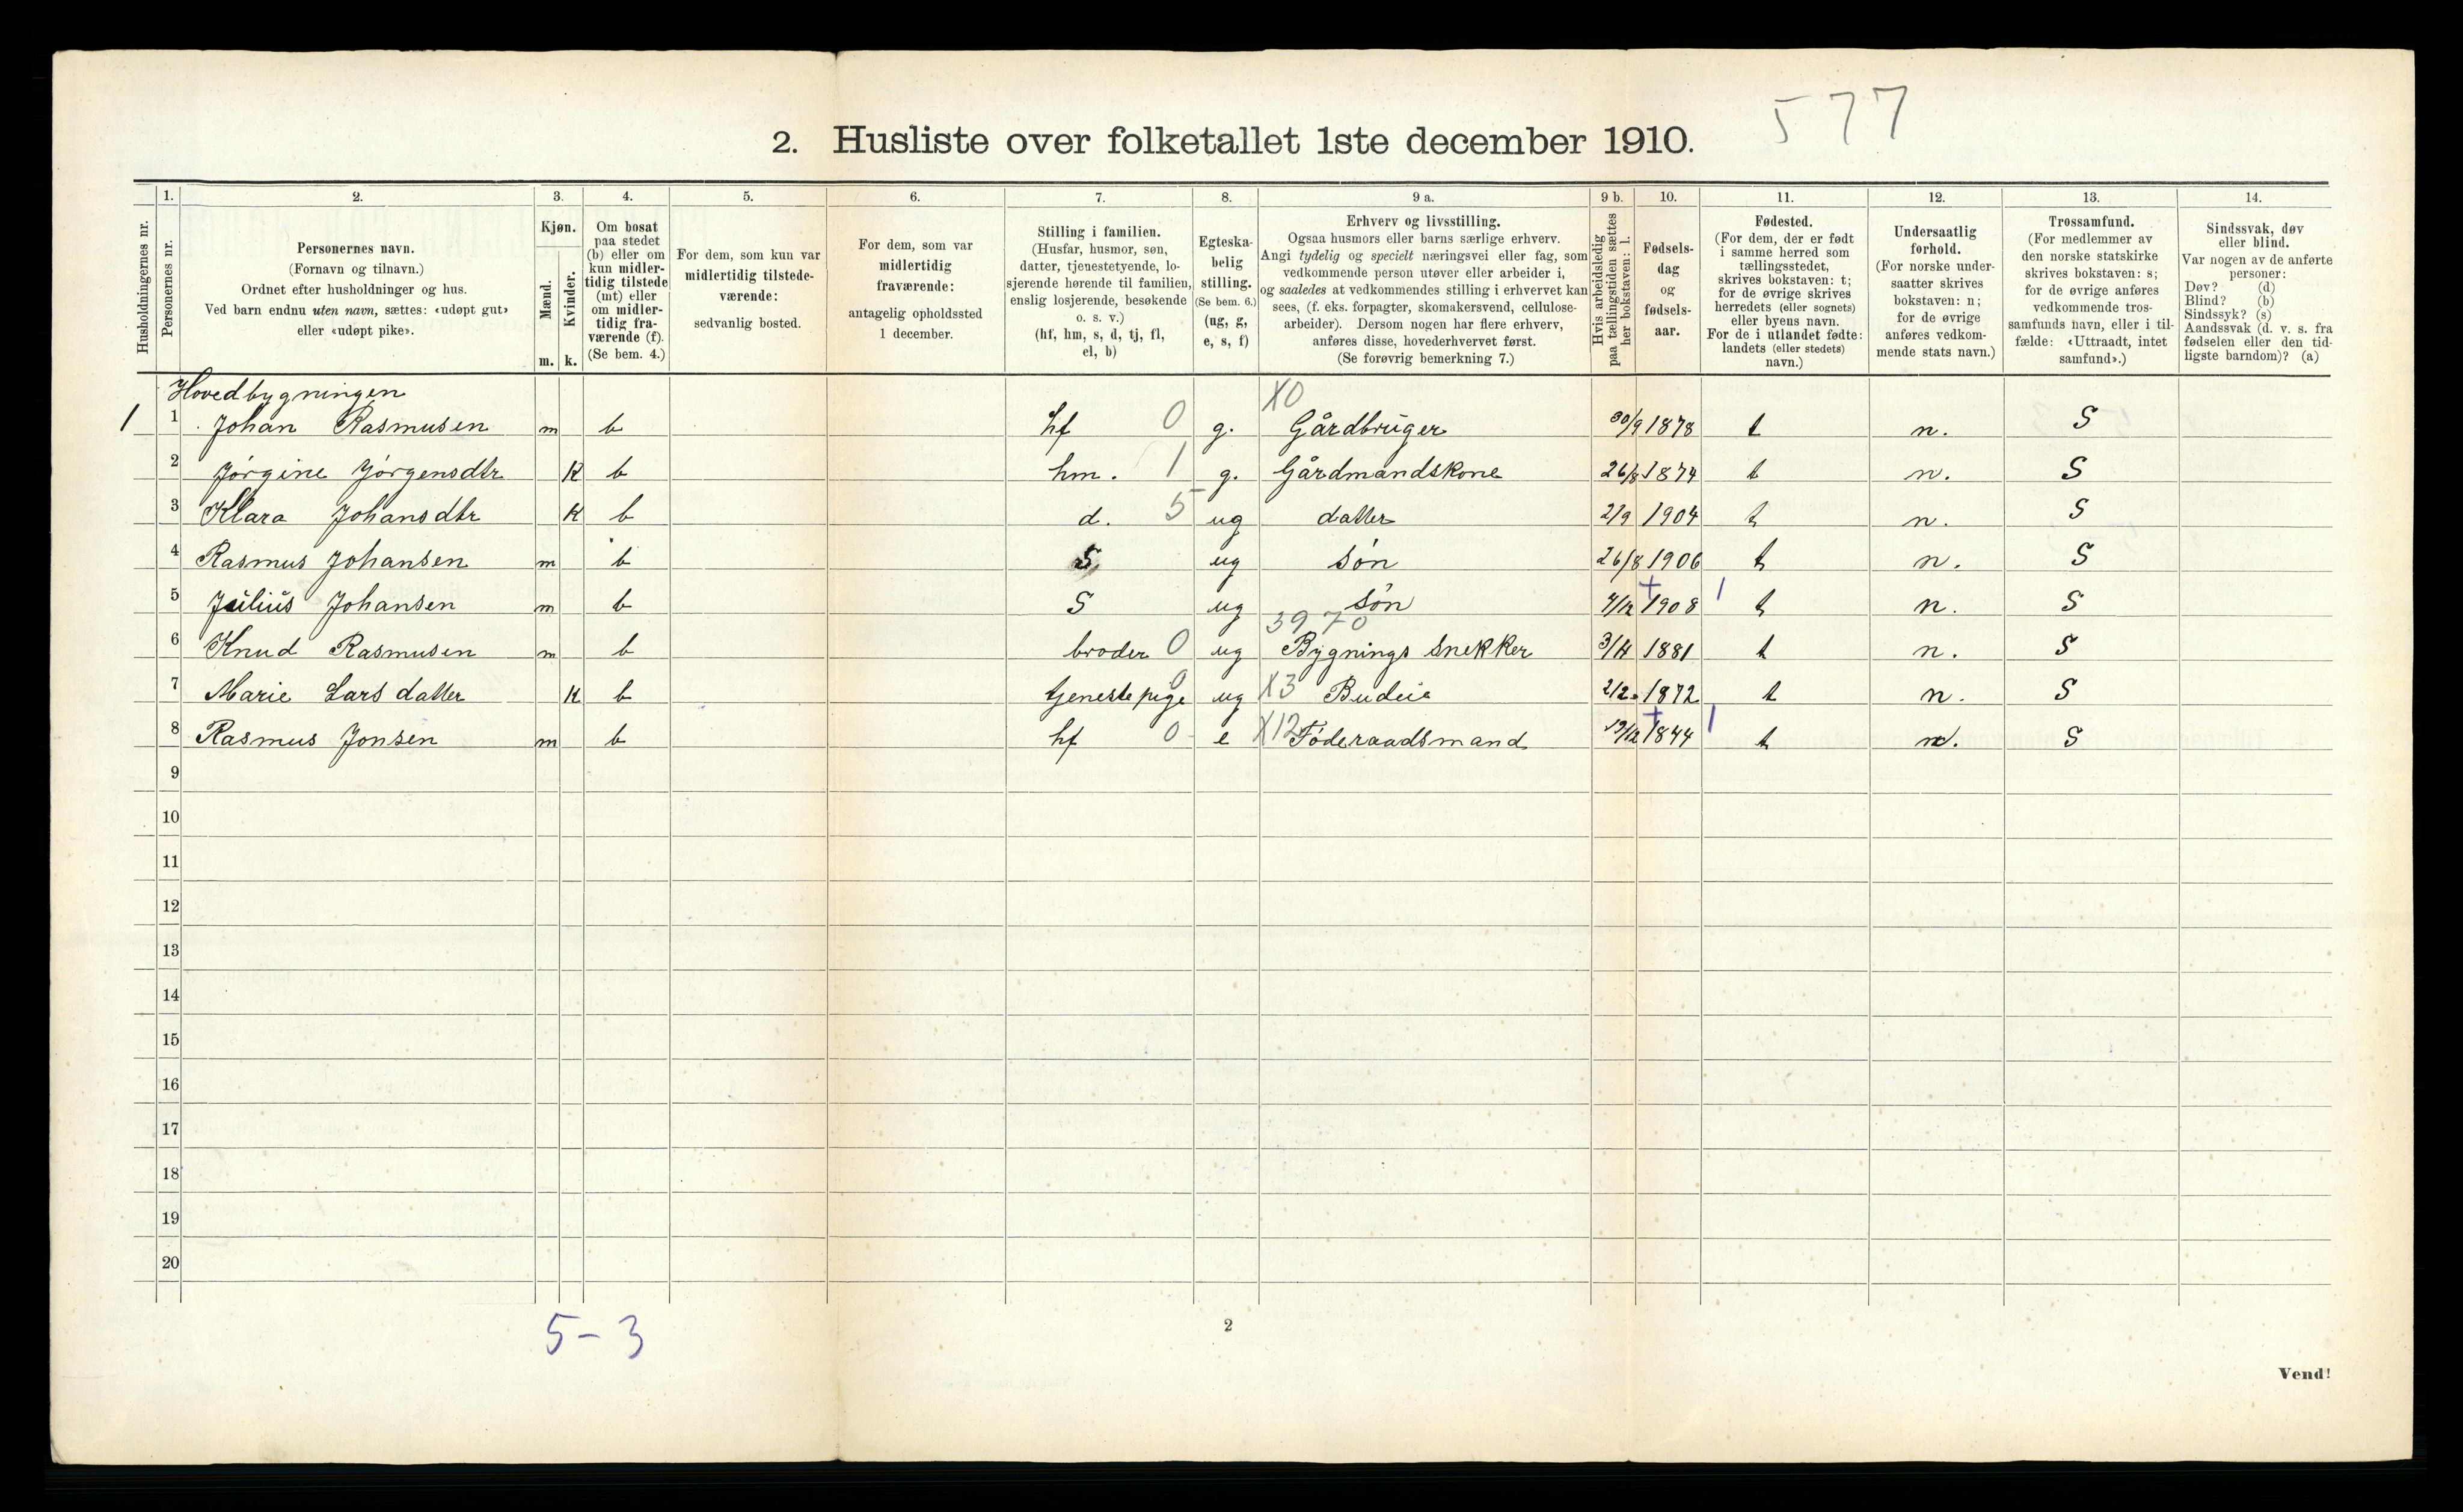 577
2. Husliste over folketallet 1ste december 1910.
Husholdningernes nr.
1.
Personernes nr.
2.
Personernes navn.
(Fornavn og tilnavn.)
Ordnet efter husholdninger og hus.
Ved barn endnu uten navn, sættes: «udøpt gut»
eller «udøpt pike».
3.
Kjøn.
Mænd.
Kvinder.
m. k.
4.
Om bosat
paa stedet
(b) eller om
kun midler-
tidig tilstede
(mt) eller
om midler-
tidig fra-
værende (f).
(Se bem. 4.)
5.
For dem, som kun var
midlertidig tilstede-
værende:
sedvanlig bosted.
6.
For dem, som var
midlertidig
fraværende:
antagelig opholdssted
1 december.
7.
Stilling i familien.
(Husfar, husmor, søn,
datter, tjenestetyende, lo-
sjerende hørende til familien,
enslig losjerende, besøkende
o. s. v.)
(hf, hm, s, d, tj, fl,
el, b)
8.
Egteska-
belig
stilling.
(Se bem. 6.)
(ug, g,
e, s, f)
9 a.
Erhverv og livsstilling.
Ogsaa husmors eller barns særlige erhverv.
Angi tydelig og specielt næringsvei eller fag, som
vedkommende person utøver eller arbeider i,
og saaledes at vedkommendes stilling i erhvervet kan
sees, (f. eks. forpagter, skomakersvend, cellulose-
arbeider). Dersom nogen har flere erhverv,
anføres disse, hovederhvervet først.
(Se forøvrig bemerkning 7.)
9 b.
Hvis arbeidsledig
paa tællingstiden sættes
her bokstaven: l.
10.
Fødsels-
dag
og
fødsels-
aar.
11.
Fødested.
(For dem, der er født
i samme herred som
tællingsstedet,
skrives bokstaven: t;
for de øvrige skrives
herredets (eller sognets)
eller byens navn.
For de i utlandet fødte:
landets (eller stedets)
navn.)
12.
Undersaatlig
forhold.
(For norske under-
saatter skrives
bokstaven: n;
for de øvrige
anføres vedkom-
mende stats navn.)
13.
Trossamfund.
(For medlemmer av
den norske statskirke
skrives bokstaven: s;
for de øvrige anføres
vedkommende tros-
samfunds navn, eller i til-
fælde: «Uttraadt, intet
samfund».)
14.
Sindssvak, døv
eller blind.
Var nogen av de anførte
personer:
Døv? (d)
Blind? (b)
Sindssyk? (s)
Aandssvak (d. v. s. fra
fødselen eller den tid-
ligste barndom)? (a)
Hovedbygningen X0
1 1 Johan Rasmusen m b hf 0 g. Gårdbrüger 30/9 1878 t n. S
2 Jørgine Jørgensdtr K b hm. 1 g. Gårdmandskone 26/8 1874 t n. S
3 Klara Johansdtr K b d. 5 ug datter 2/9 1904 t n. S
4 Rasmus Johansen m b S ug søn 26/8 1906 t n. S
5 Jülius Johansen m b S ug søn 4/12 1908 1 t n. S
3970
6 Knud Rasmusen m b broder 0 ug Bygnings snekker 3/4 1881 t n. S
7 Marie Larsdatter K b tjenestepige 0 ug X3 Budeie 2/2 1872 t n. S
8 Rasmus Jonsen m b hf 0 e X12 Føderaadsmand 19/12 1844 1 t n. S
9
10
11
12
13
14
15
16
17
18
19
20
5-3
2
Vend!